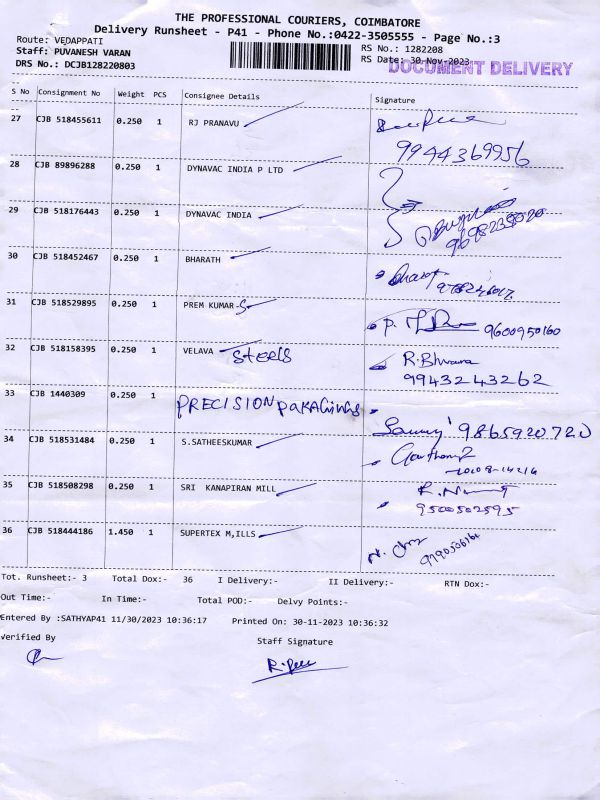 THE PROFESSIONAL COURIERS, COIMBATORE
Delivery Runsheet - P41 - Phone No.:0422-3505555 - Page No.:3
Route: VEDAPPATI RS No.: 1282208
Staff: PUVANESH VARAN RS Date: 30-Nov-2023
DRS No.: DCJB128220803 DOCUMENT DELIVERY
S No Consignment No Weight PCS Consignee Details Signature
27 CJB 518455611 0.250 1 RJ PRANAVU
9944369956
28 CJB 89896288 0.250 1 DYNAVAC INDIA P LTD
29 CJB 518176443 0.250 1 DYNAVAC INDIA
30 CJB 518452467 0.250 1 BHARATH
31 CJB 518529895 0.250 1 PREM KUMAR-S
9600950160
32 CJB 518158395 0.250 1 VELAVA Steels R.Bhuvana
9943243262
33 CJB 1440309 0.250 1 PRECISION PaKAGiNGS
9865920720
34 CJB 518531484 0.250 1 S.SATHEESKUMAR
35 CJB 518508298 0.250 1 SRI KANAPIRAN MILL
9500502595
36 CJB 518444186 1.450 1 SUPERTEX M,ILLS
Tot. Runsheet:- 3 Total Dox:- 36 I Delivery:- II Delivery:- RTN Dox:-
Out Time:- In Time:- Total POD:- Delvy Points:-
Entered By :SATHYAP41 11/30/2023 10:36:17 Printed On: 30-11-2023 10:36:32
Verified By Staff Signature